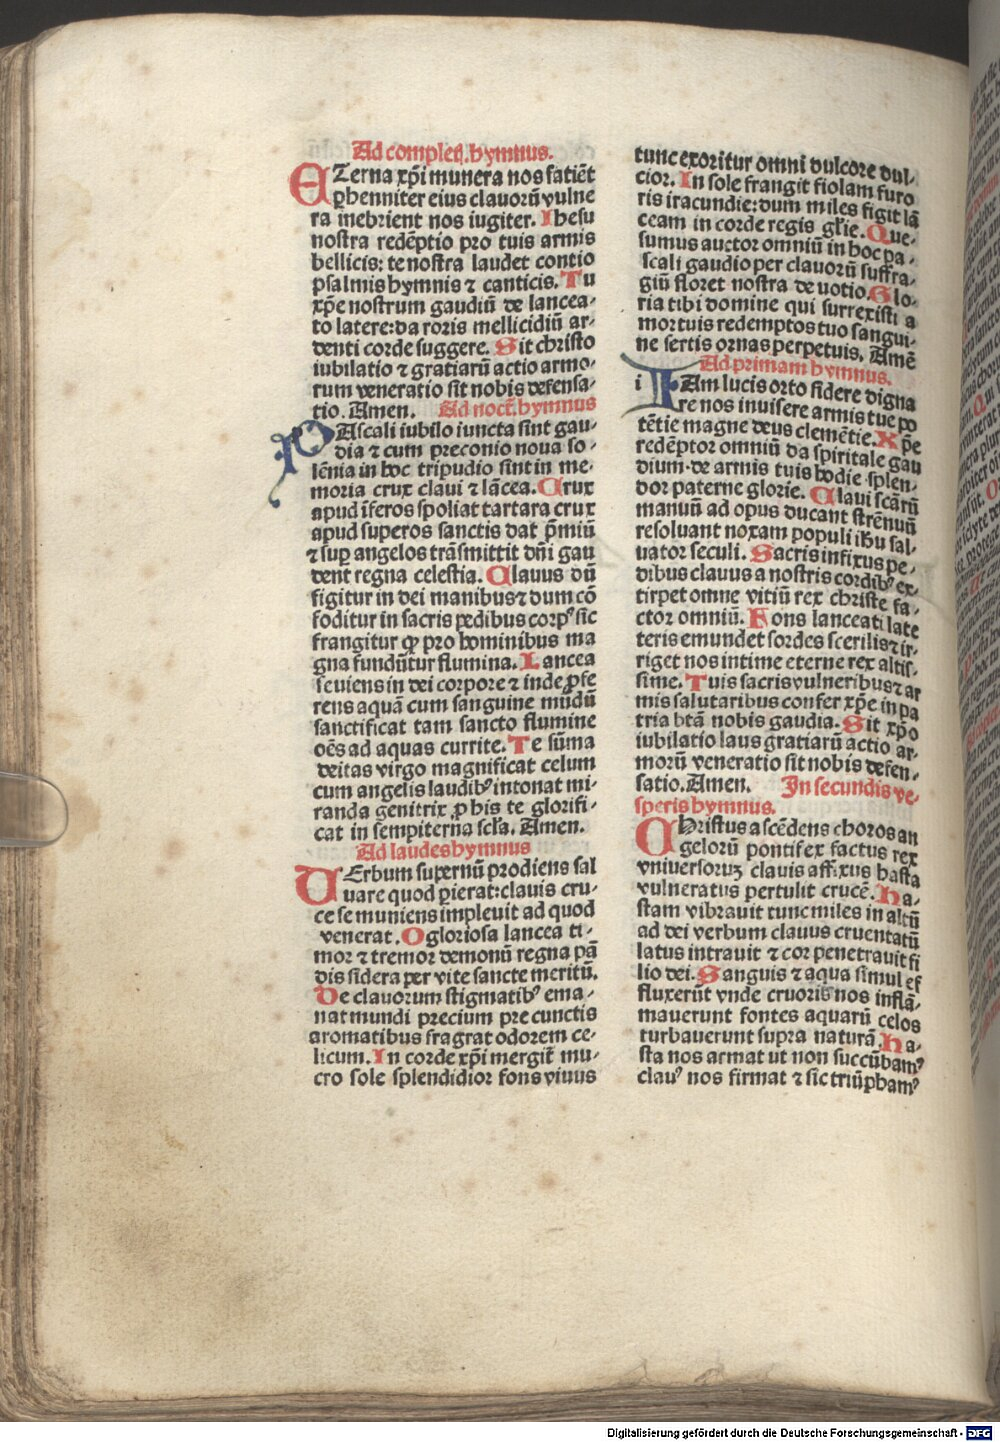 Ad compleꝉ. hymnus.
ETerna xp̄i munera nos satiēt
ꝑhenniter eius clauorū vulne
ra inebrient nos iugiter. Ihesu
nostra redēptio pro tuis armis
bellicis: te nostra laudet contio
psalmis hymnis ⁊ canticis. Tu
xp̄e nostrum gaudiū de lancea-
to latere: da roris mellicidiū ar-
denti corde suggere. Sit christo
iubilatio ⁊ gratiarū actio armo-
rum veneratio sit nobis defensa-
tio. Amen. Ad noct̄. hymnus
PAscali iubilo iuncta sint gau-
dia ⁊ cum preconio noua so-
lēnia in hoc tripudio sint in me-
moria crux claui ⁊ lācea. Crux
apud īferos spoliat tartara crux
apud superos sanctis dat p̄miū
⁊ suꝑ angelos trāsmittit dn̄i gau
dent regna celestia. Clauus dū
figitur in dei manibus ⁊ dum cō
foditur in sacris pedibus corpꝰ sic
frangitur ꝙ pro hominibus ma
gna fundūtur flumina. Lancea
seuiens in dei corpore ⁊ inde ꝓfe
rens aquā cum sanguine mūdū
sanctificat tam sancto flumine
oēs ad aquas currite. Te sūma
deitas virgo magnificat celum
cum angelis laudibꝰ intonat mi-
randa genitrix ꝓ his te glorifi-
cat in sempiterna scl̄a. Amen.
Ad laudes hymnus
VErbum supernū prodiens sal
uare quod ꝑierat: clauis cru-
ce se muniens impleuit ad quod
venerat. O gloriosa lancea ti-
mor ⁊ tremor demonū regna pā
dis sidera per vite sancte meritū.
De clauorum stigmatibꝰ ema-
nat mundi precium pre cunctis
aromatibus fragrat odorem ce-
licum. In corde xp̄i mergit̄ mu-
cro sole splendidior fons viuus
tunc exoritur omni dulcore dul-
cior. In sole frangit fiolam furo
ris iracundie: dum miles figit lā
ceam in corde regis gl̄ie. Que-
sumus auctor omniū in hoc pa-
scali gaudio per clauorū suffra-
giū floret nostra de uotio. Glo-
ria tibi domine qui surrexisti a
mortuis redemptos tuo sangui-
ne sertis ornas perpetuis. Amē
Ad primam hymnus.
i IAm lucis orto sidere digna
re nos inuisere armis tue po
tētie magne deus clemētie. Xp̄e
redēptor omniū da spiritale gau
dium. de armis tuis hodie splen-
dor paterne glorie. Claui scārū
manuū ad opus ducant strēnuū
resoluant noxam populi ihu sal-
uator seculi. Sacris infixus pe-
dibus clauus a nostris cordibꝰ ex-
tirpet omne vitiū rex christe fa-
ctor omniū. Fons lanceati late
teris emundet sordes sceris ⁊ ir-
riget nos intime eterne rex altis-
sime. Tuis sacris vulneribus ⁊ ar
mis salutaribus confer xp̄e in pa
tria btā nobis gaudia. Sit xp̄o
iubilatio laus gratiarū actio ar-
morū veneratio sit nobis defen-
satio. Amen. In secundis ve-
speris hymnus.
CHristus ascēdens choros an
gelorū pontifex factus rex
vniuersorꝫ clauis affixus hasta
vulneratus pertulit crucē. Ha-
stam vibrauit tunc miles in altū
ad dei verbum clauus cruentatū
latus intrauit ⁊ cor penetrauit fi
lio dei. Sanguis ⁊ aqua simul ef
fluxerūt vnde cruoris nos inflā-
mauerunt fontes aquarū celos
turbauerunt supra naturā. Ha-
sta nos armat ut non succūbamꝰ
clauꝰ nos firmat ⁊ sic triūphamꝰ
Digitalisierung gefördert durch die Deutsche Forschungsgemeinschaft - DFG